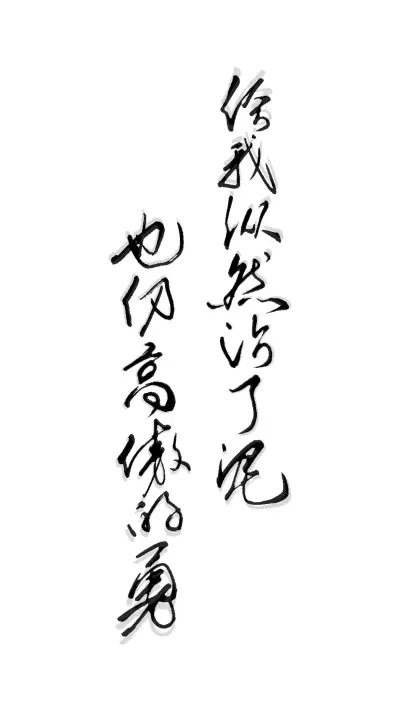 给我纵然沾了泥
也仍高傲的勇